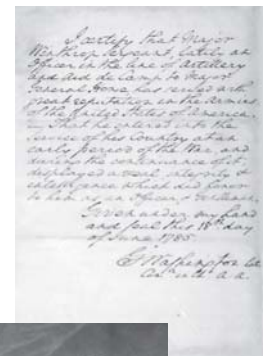 I certify that Major
Winthrop Sergeant, lately an
Officer in the line of Artillery
and Aid de Camp to Major
General Howe has served with
great reputation in the Armies
of the United States of America.
That he entered into the
service of his Country at an
early period of the War, and
during the continuance of it
displayed a zeal, integrity &
intelligence which did honor
to him as an Officer &
Given under my hand
and seal this 18th day
of June 1785
G Washington